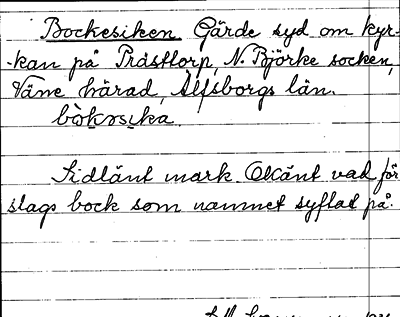 Bockesiken Gärde syd om kyr-
-kan på Prästtorp, N. Björke socken,
Väne härad, Älfsborgs län.
Sidlänt mark. Okänt vad för
slags bock som namnet syftat på.